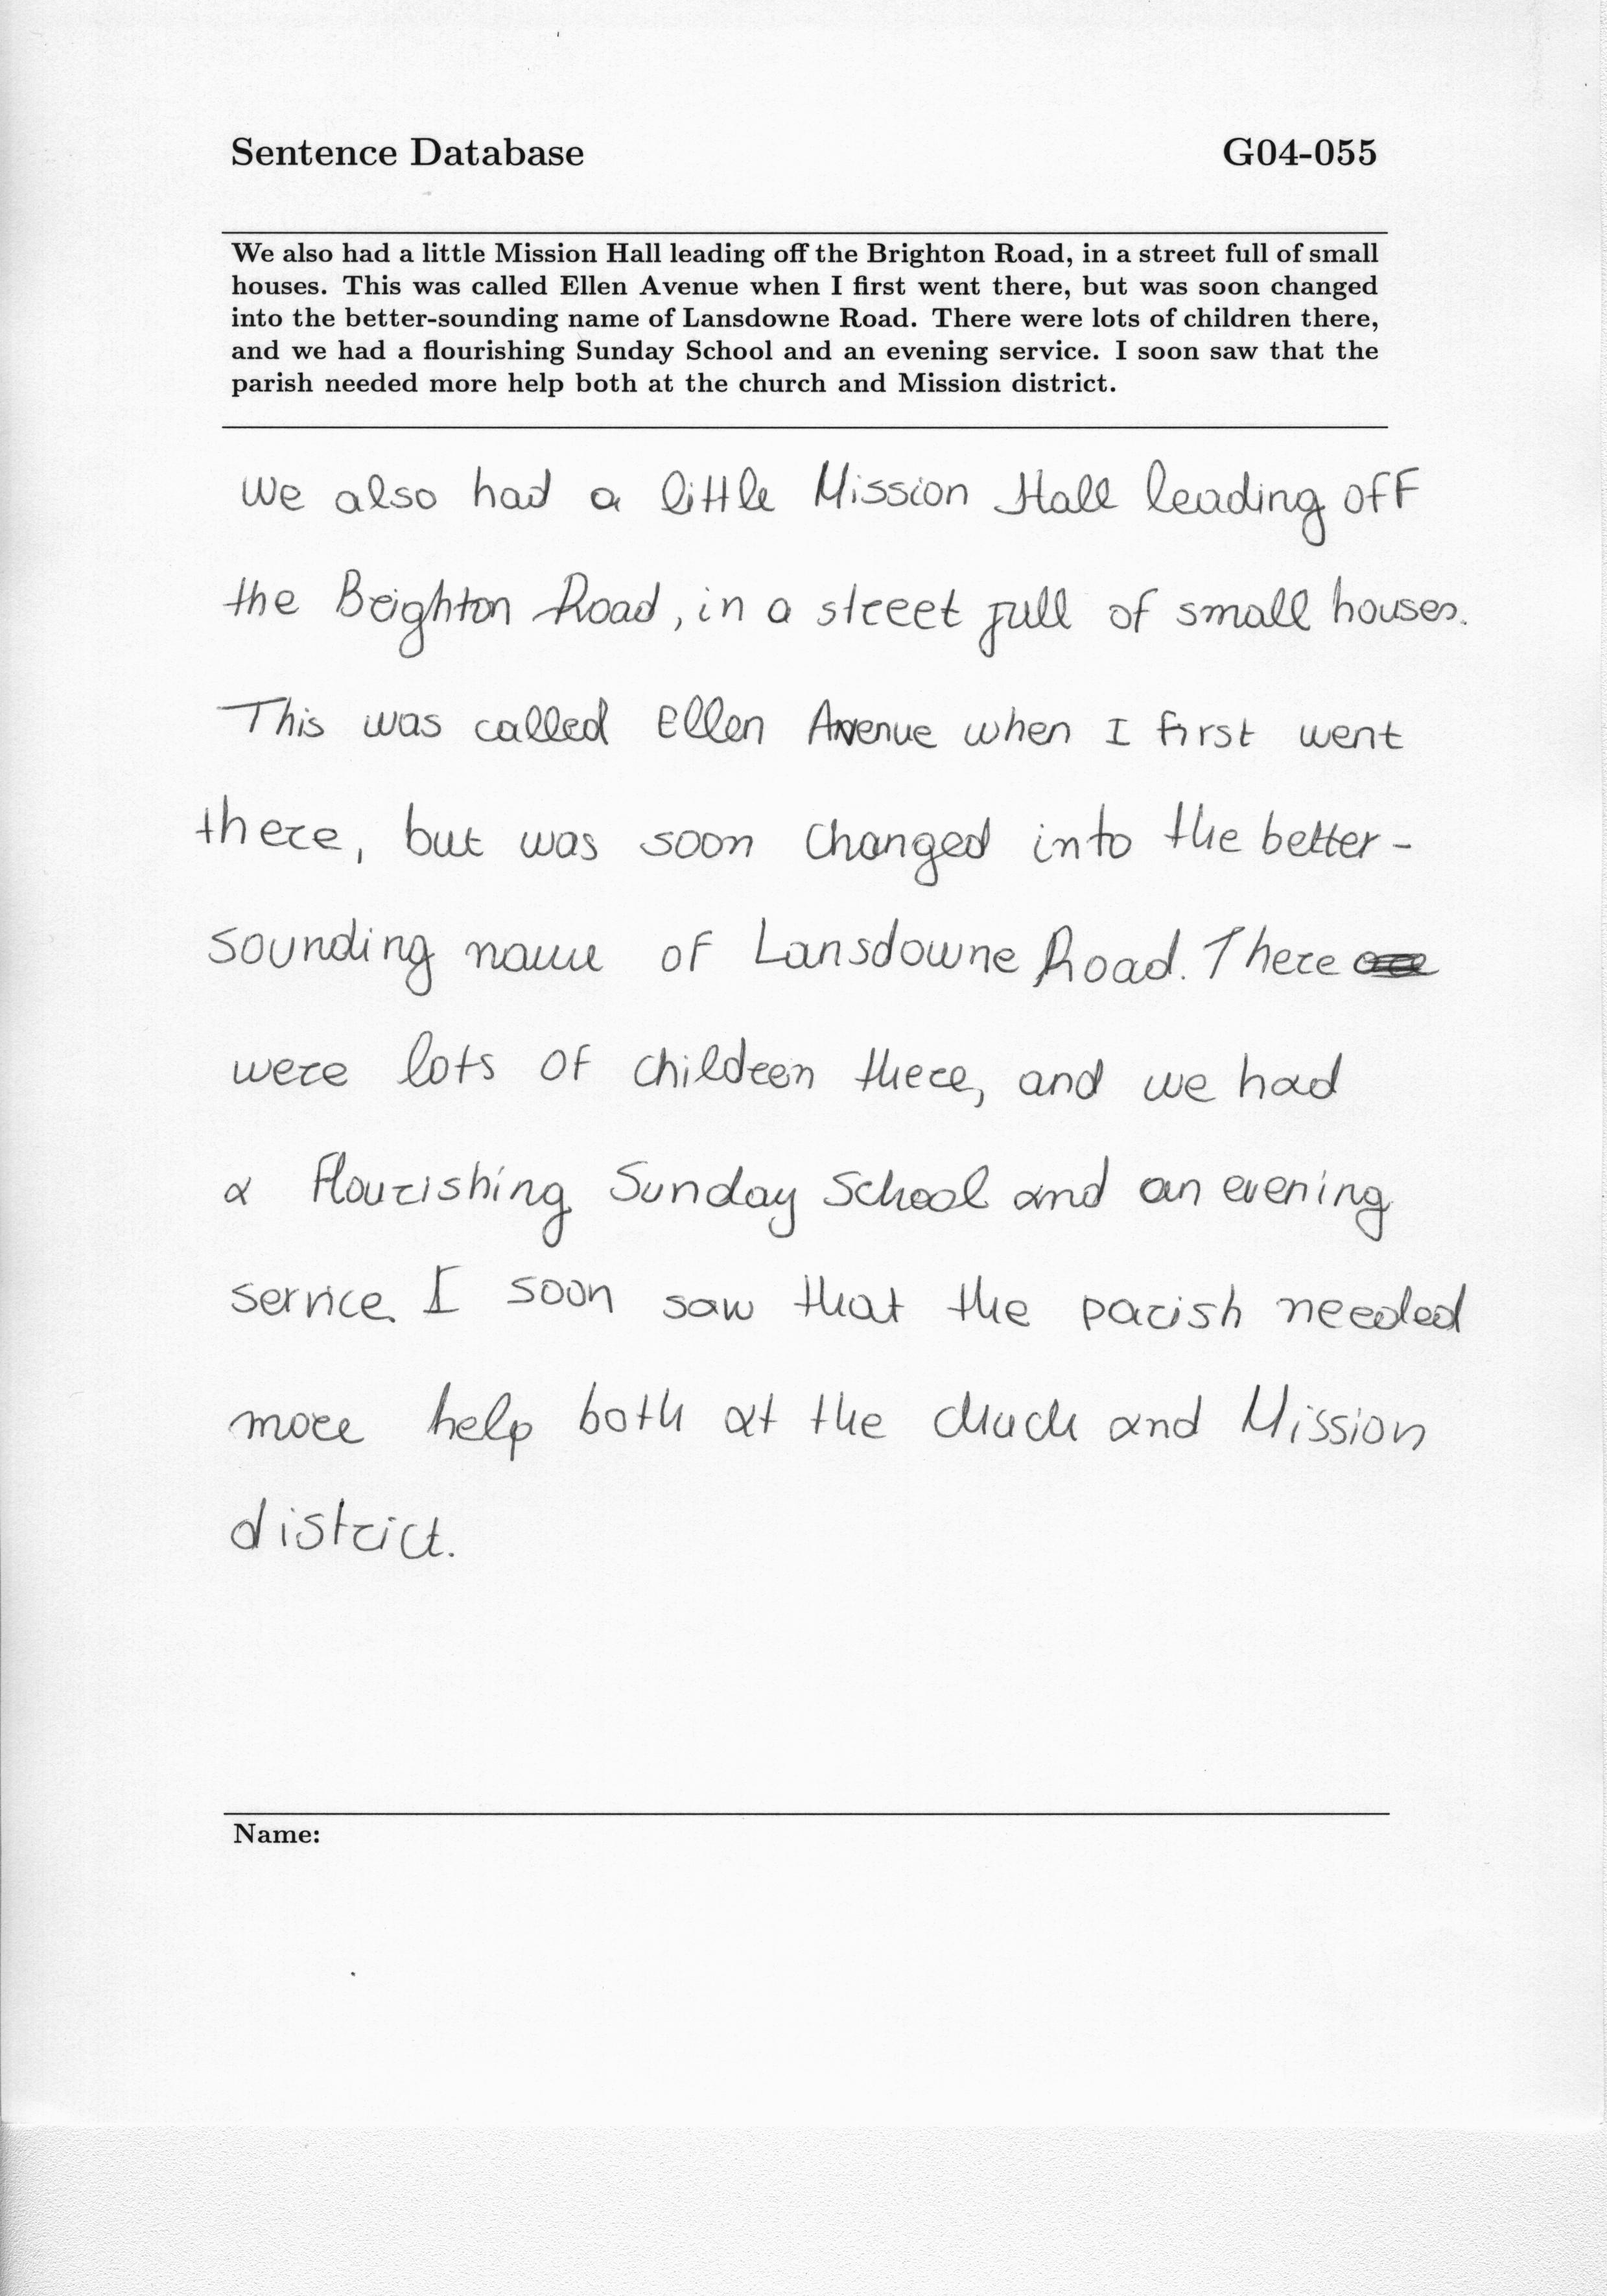 Sentence Database G04-055
We also had a little Mission Hall leading off the Brighton Road, in a street full of small
houses. This was called Ellen Avenue when I first went there, but was soon changed
into the better-sounding name of Lansdowne Road. There were lots of children there,
and we had a flourishing Sunday School and an evening service. I soon saw that the
parish needed more help both at the church and Mission district.
We also had a little Mission Hall leading off
the Brighton Road, in a street full of small houses.
This was called Ellen Avenue when I first went
there, but was soon changed into the better-
sounding name of Lansdowne Road. There
were lots of children there, and we had
a flourishing Sunday School and an evening
service. I soon saw that the parish needed
more help both at the church and Mission
district.
Name: